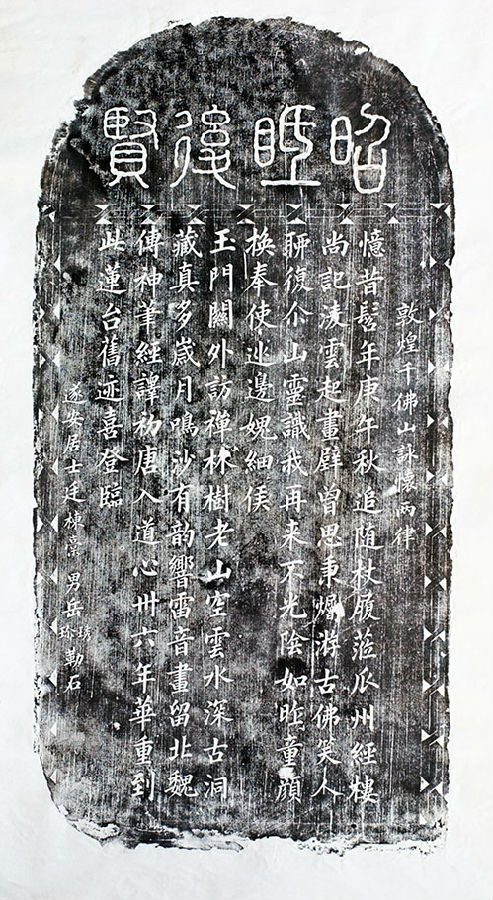 昭眡後賢
敦煌千佛山詠懷两律
憶昔髫年庚午秋追随杖履蒞瓜州經樓
尚記淩雲起畫壁曾思秉爥游古佛笑人
聊復尒山靈識我再来不光陰如昨童顔
换奉使巡邊媿細侯
玉門關外訪禪林樹老山空雲水深古洞
藏真多歲月鳴沙有韵響雷音畫留北魏
傳神筆經譯初唐入道心卅六年華重到
此蓮台舊迹喜登臨
遂安居士廷棟稾 男岳 珍 勒石